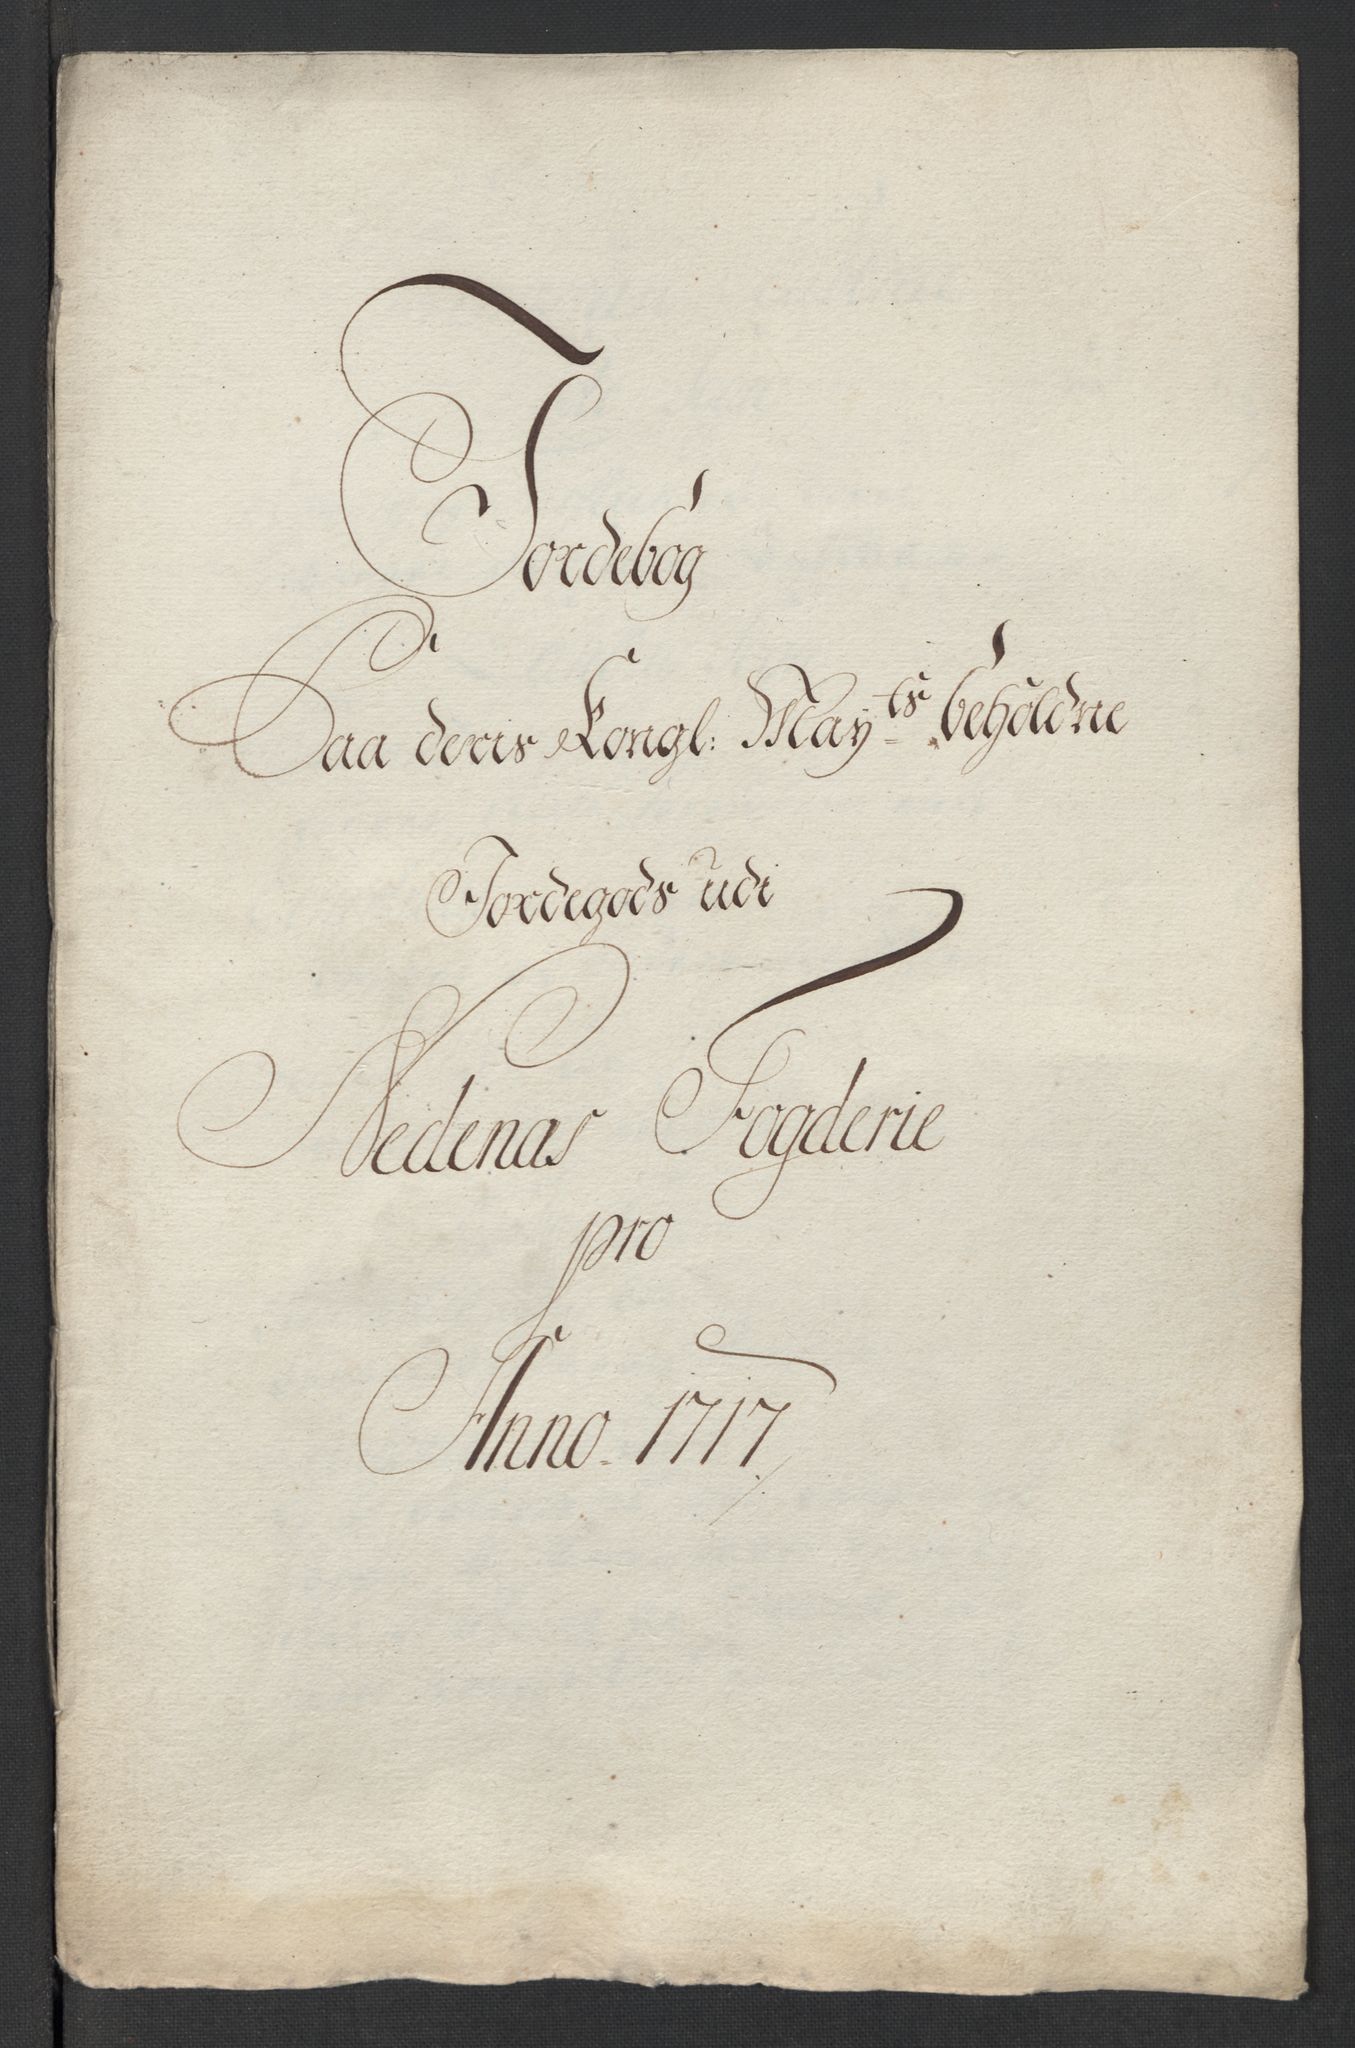 Jordebog
Paa deris Kongl: May.ts beholdne
Jordegods udi
Nedenas Fogderie
pro
Anno. 1717